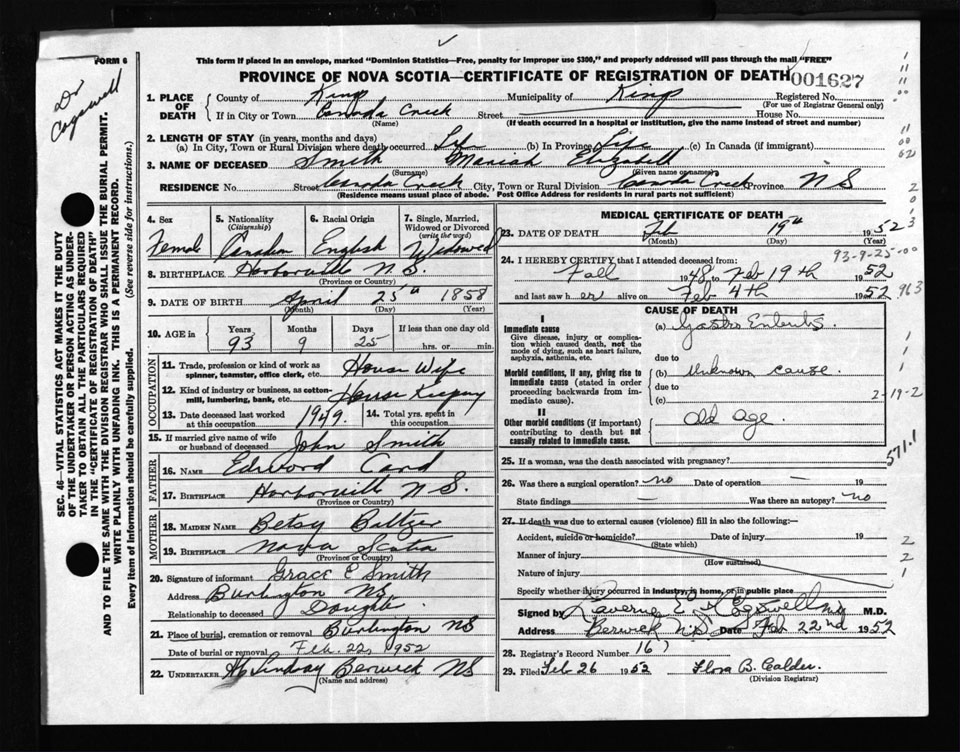 FORM 6
This form if placed in an envelope, marked "Dominion Statistics—Free, penalty for improper use $300," and properly addressed will pass through the mail "FREE"
PROVINCE OF NOVA SCOTIA—CERTIFICATE OF REGISTRATION OF DEATH 001627
Dr Cogswell
SEC. 46—VITAL STATISTICS ACT MAKES IT THE DUTY
OF THE UNDERTAKER OR PERSON ACTING AS UNDER-
TAKER TO OBTAIN ALL THE PARTICULARS REQUIRED
IN THE "CERTIFICATE OF REGISTRATION OF DEATH"
AND TO FILE THE SAME WITH THE DIVISION REGISTRAR WHO SHALL ISSUE THE BURIAL PERMIT.
WRITE PLAINLY WITH UNFADING INK. THIS IS A PERMANENT RECORD.
Every item of information should be carefully supplied. (See reverse side for instructions.)
1. PLACE OF DEATH County of Kings Municipality of Kings Registered No.
(For use of Registrar General only)
If in City or Town Canada Creek Street House No.
(Name) (If death occurred in a hospital or institution, give the name instead of street and number)
2. LENGTH OF STAY (in years, months and days)
(a) In City, Town or Rural Division where death occurred Life (b) In Province Life (c) In Canada (if immigrant)
3. NAME OF DECEASED Smith Mariah Elizabeth
(Surname) (Given name or names)
RESIDENCE No. Street Canada Creek City, Town or Rural Division Canada Creek Province N S
(Residence means usual place of abode. Post Office Address for residents in rural parts not sufficient)
4. Sex 5. Nationality (Citizenship) 6. Racial Origin 7. Single, Married, Widowed or Divorced (write the word)
Female Canadian English Widowed
8. BIRTHPLACE Harborville N. S.
(Province or Country)
9. DATE OF BIRTH April 25th 1858
(Month) (Day) (Year)
10. AGE in Years Months Days If less than one day old
93 9 25 hrs. or min.
OCCUPATION
11. Trade, profession or kind of work as spinner, teamster, office clerk, etc. House Wife
12. Kind of industry or business, as cotton-mill, lumbering, bank, etc. House Keeping
13. Date deceased last worked at this occupation 1949. 14. Total yrs. spent in this occupation
15. If married give name of wife or husband of deceased John Smith
FATHER
16. NAME Edward Card
17. BIRTHPLACE Harborville N S.
(Province or Country)
MOTHER
18. MAIDEN NAME Betsy Baltzer
19. BIRTHPLACE Nova Scotia
(Province or Country)
20. Signature of informant Grace E Smith
Address Burlington NS
Relationship to deceased
21. Place of burial, cremation or removal Burlington NS
Date of burial or removal Feb. 22, 1952
22. UNDERTAKER Lindsay Berwick NS
(Name and address)
MEDICAL CERTIFICATE OF DEATH
23. DATE OF DEATH Feb 19th 1952
(Month) (Day) (Year)
93-9-25-00
24. I HEREBY CERTIFY that I attended deceased from:
Fall 1948 to Feb 19th 1952
and last saw her alive on Feb 4th 1952 963
CAUSE OF DEATH
I
Immediate cause
Give disease, injury or complication which caused death, not the mode of dying, such as heart failure, asphyxia, asthenia, etc.
(a) Gastro Enteritis
due to
Morbid conditions, if any, giving rise to immediate cause (stated in order proceeding backwards from immediate cause).
(b) Unknown cause
due to
(c) 2-19-2
II
Other morbid conditions (if important) contributing to death but not causally related to immediate cause.
Old age
571.1
25. If a woman, was the death associated with pregnancy?
26. Was there a surgical operation? no Date of operation — 19
State findings — Was there an autopsy? no
27. If death was due to external causes (violence) fill in also the following:—
Accident, suicide or homicide? Date of injury 19
(State which)
Manner of injury
(How sustained)
Nature of injury
Specify whether injury occurred in Industry, in home, or in public place
Signed by Laverne E. Cogswell M.D.
Address Berwick N.S. Date Feb 22nd 1952
28. Registrar's Record Number 167
29. Filed Feb 26 1952 Flora B. Calder.
(Division Registrar)